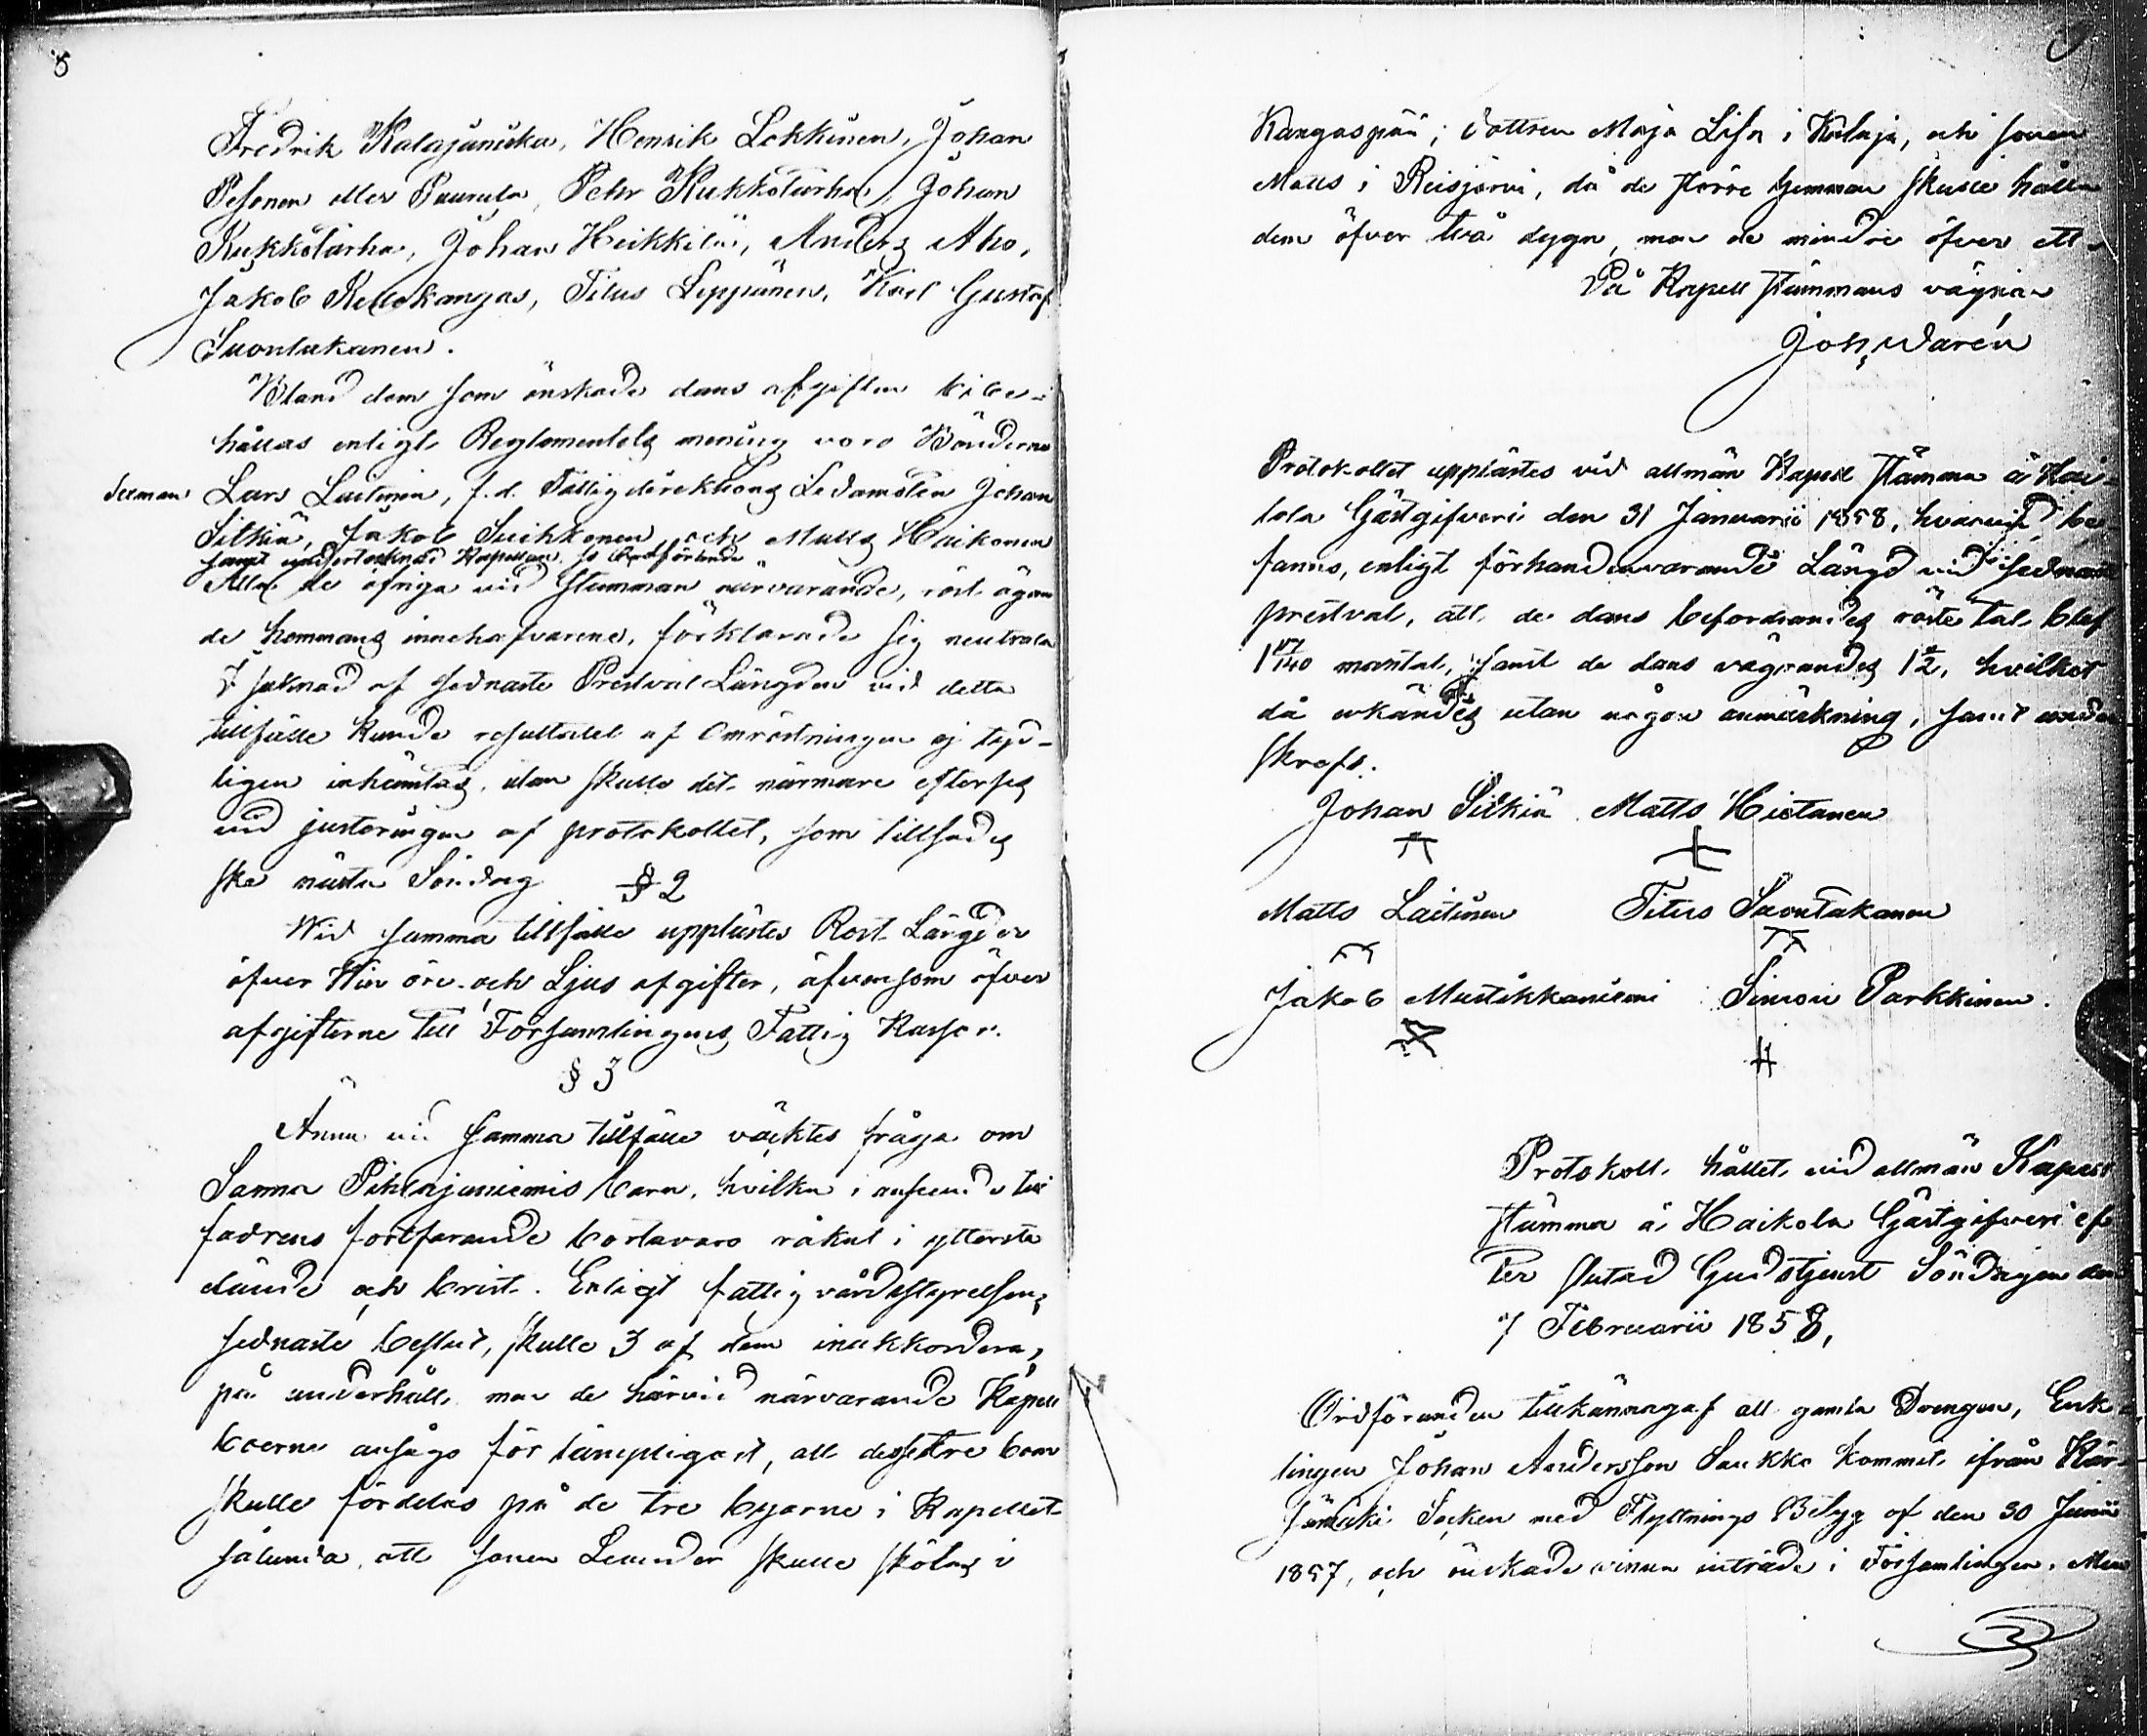 5
Fredrik Kalajaniska, Henrik Lokkinen, Johan
Pesonen eller Puurula, Pehr Kukkotarha, Johan
Kukkotarha, Johan Heikkilä, Anders Aho,
Jakob Kellokangas, Titus Leppänen, Karl Gustaf
Suontakanen.
Bland dem som önskade dans afgiften bibe-
hållas enligt Reglementets mening voro Bönderna
Lars Laitinen, f.d. Fattigdirektions Ledamoten Johan
Silkiä, Jakob Suikkonen, och Matts Haikonen
samt undertecknad Kapellan, så Ordförande
Alla de öfriga vid Stämman närvarande, röst ägan
de hemmans innehafvarene, förklarade sig neutrala
I saknad af sednaste Prestval Längden vid detta
tillfälle kunde resultatet af Omröstningen ej tyd-
ligen inhämtas, utan skulle det närmare efterses
vid justeringen af protokollet, som tillsades
ske nästa Söndag § 2
Wid samma tillfälle upplästes Rost Längden
öfver Win öre och Ljus afgifter, äfvensom öfver
afgifterne till Församlingens Fattig Kassor.
§ 3
Ännu vid samma tillfälle väcktes fråga om
Sanna Pihlajaniemis barn, hvilka i anseende till
fadrens fortfarande bortavaro råkat i yttersta
elände och brist. Enligt fattigvårdsstyrelsens
sednaste beslut, skulle 3 af dem inackorderas
på underhåll, men de härvid närvarande Kapell
boerne ansågo för lämpligast, att dessa tre barn
skulle fördelas på de tre byarne i Kapellet
sålunda, att sonen Leander skulle skötas i
Kangaspää; dottren Maja Lisa i Kalaja, och sonen
Matts i Reisjärvi, då de större hemman skulle hålla
dem öfver två dygn, men de mindre öfver ett.
På Kapell Stämmans vägnar
Joh. Warén
Protokollet upplästes vid allmän Kapell Stämma å Hai-
kola Gästgifveri den 31 Januarii 1858, hvarvid be
fanns, enligt förhandenvarande Längd vid sednaste
prestval, att de dans befordrandes röste tal blef
1 17/140 mantal, samt de dans vägrandes 1 1/2, hvilket
då erkändes utan någon anmärkning, samt under
skrefs.
Johan Silkiä Matts Hietanen
Matts Laitinen Titus Suontakanen
Jakob Mustikkaniemi Simon Parkkinen.
Protokoll hållet vid allmän Kapell
Stämma å Haikola Gästgifveri ef
ter slutad Gudstjenst Söndagen den
7 Februarii 1858,
Ordföranden tillkännagaf att gamla Drengen, Enk
lingen Johan Andersson Saukko kommit ifrån Kär-
sämäki Socken med Flyttnings Betyg af den 30 Junii
1857, och önskade vinna inträde i Församlingen. Men